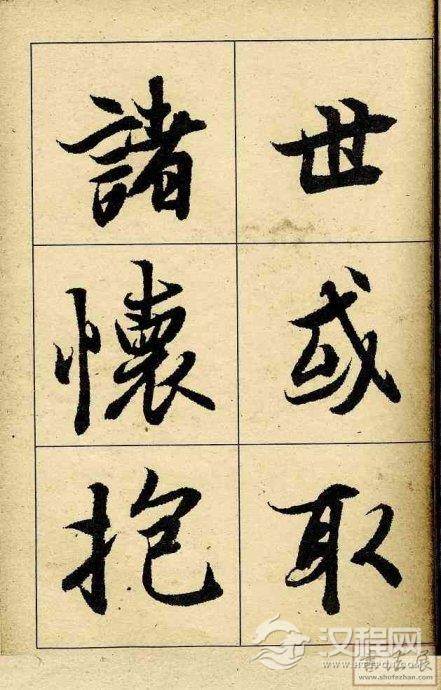 世或取
諸懷抱
汉程网
www.shufezhan.com